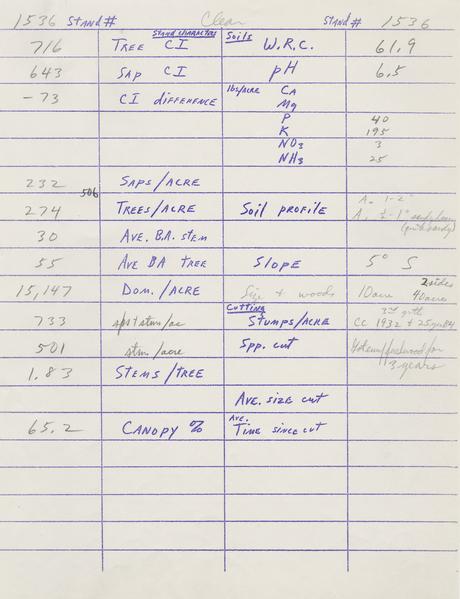 1536 STAND # Clear STAND # 1536
STAND CHARACTERS Soils
716 TREE CI W.R.C. 61.9
643 SAP CI pH 6.5
-73 CI DIFFERENCE lbs/acre CA
Mg
P 40
K 195
NO3 3
NH3 25
232 SAPS/ACRE
506
274 TREES/ACRE Soil PROFILE A. 1-2"
A,
30 AVE. B.A. STEM
55 AVE BA TREE SLOPE 5° S
2 sides
15,147 DOM./ACRE Size + woods 10 acre 40 acres
Cutting
733 sps + stm/ac STUMPS/ACRE CC 1932
501 stm/acre Spp. cut
3 years
1.83 STEMS/TREE
AVE. SIZE CUT
65.2 CANOPY % AVE. TIME SINCE CUT